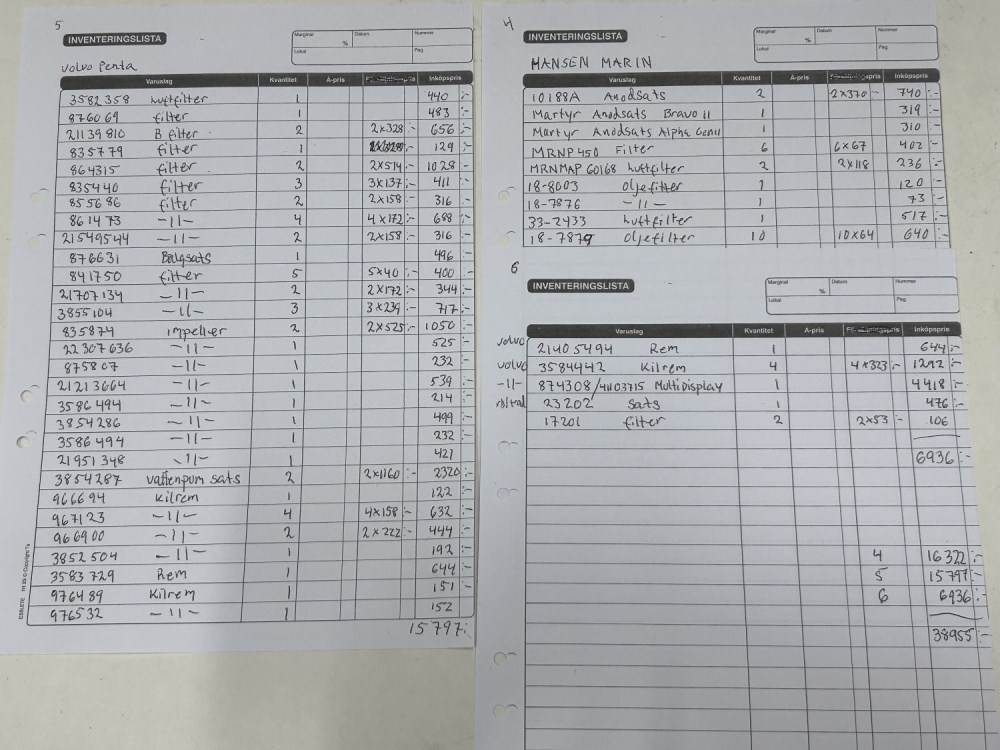 5
INVENTERINGSLISTA
Marginal % Datum Nummer
Lokal Pag
Volvo Penta
Varuslag Kvantitet A-pris Inköpspris
3582358 Luftfilter 1 440 :-
876069 filter 1 483 :-
21139810 B filter 2 2x328 :- 656 :-
835779 filter 1 129 :-
864315 filter 2 2x514 :- 1028 :-
835440 filter 3 3x137 :- 411 :-
855686 filter 2 2x158 :- 316 :-
861473 -11- 4 4x172 :- 688 :-
21549544 -11- 2 2x158 :- 316 :-
876631 Bälgsats 1 496 :-
841750 filter 5 5x40 :- 400 :-
21707134 -11- 2 2x172 :- 344 :-
3855104 -11- 3 3x239 :- 717 :-
835874 impeller 2 2x525 :- 1050 :-
22307636 -11- 1 525 :-
875807 -11- 1 232 :-
21213664 -11- 1 539 :-
3586494 -11- 1 214 :-
3854286 -11- 1 499 :-
3586494 -11- 1 232 :-
21951348 -11- 1 421 :-
3854287 Vattenpum sats 2 2x1160 :- 2320 :-
966694 Kilrem 1 122 :-
967123 -11- 4 4x158 :- 632 :-
966900 -11- 2 2x222 :- 444 :-
3852504 -11- 1 192 :-
3583729 Rem 1 644 :-
976489 Kilrem 1 151 :-
976532 -11- 1 152
15797:-
4
INVENTERINGSLISTA
Marginal % Datum Nummer
Lokal Pag
HANSEN MARIN
Varuslag Kvantitet A-pris Inköpspris
10188A Anodsats 2 2x370 :- 740 :-
Martyr Anodsats Bravo II 1 319 :-
Martyr Anodsats Alpha Gen II 1 310 :-
MRNP450 Filter 6 6x67 402 :-
MRNMAP60168 Luftfilter 2 2x118 236 :-
18-8003 Oljefilter 1 120 :-
18-7876 -11- 1 73 :-
33-2433 Luftfilter 1 517 :-
18-7879 Oljefilter 10 10x64 640 :-
6
INVENTERINGSLISTA
Marginal % Datum Nummer
Lokal Pag
Varuslag Kvantitet A-pris Inköpspris
Volvo 21405494 Rem 1 644 :-
Volvo 3584442 Kilrem 4 4x323 :- 1292 :-
-11- 874308/41103715 Multidisplay 1 4418 :-
23202 Sats 1 476 :-
17201 filter 2 2x53 :- 106
6936 :-
4 16322 :-
5 15797 :-
6 6936 :-
38955 :-